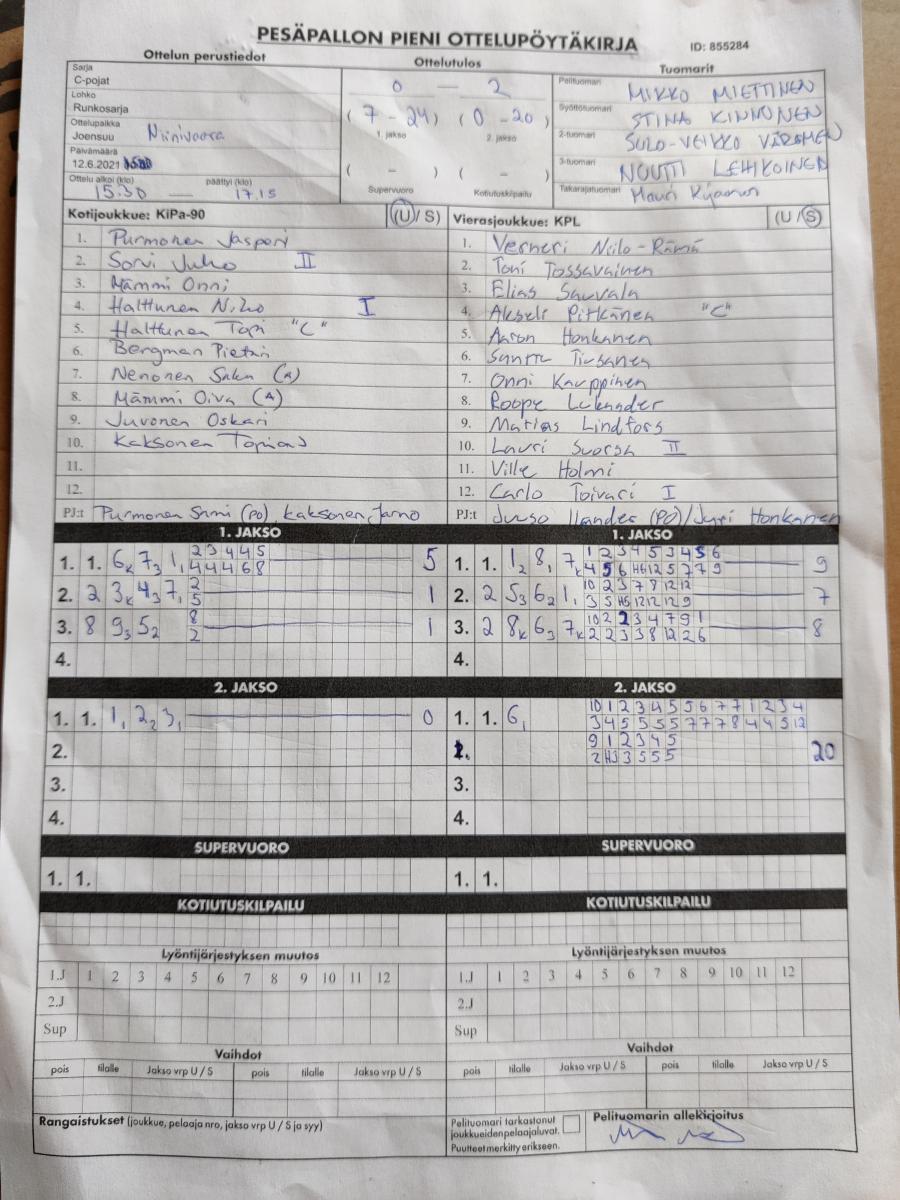 PESÄPALLON PIENI OTTELUPÖYTÄKIRJA
ID: 855284
Ottelun perustiedot
Sarja
C-pojat
Lohko
Runkosarja
Ottelupaikka
Joensuu Niinivaara
Päivämäärä
12.6.2021
Ottelu alkoi (klo) päättyi (klo)
15.30 — 17.15
Ottelutulos
0 — 2
(7 - 24) (0 - 20)
1. jakso 2. jakso
( - ) ( - )
Supervuoro Kotiutuskilpailu
Tuomarit
Pelituomari MIKKO MIETTINEN
Syöttötuomari STINA KINNUNEN
2-tuomari SULO-VEIKKO
3-tuomari NOUTTI LEHIKOINEN
Takarajatuomari Mauri
Kotijoukkue: KiPa-90 (U / S)
1. Purmonen Jasperi
2. Sorvi Juho II
3. Mämmi Onni
4. Halttunen Niko I
5. Halttunen Topi "C"
6. Bergman Pietari
7. Nenonen Saku (A)
8. Mämmi Oiva (A)
9. Juvonen Oskari
10. Kaksonen Topias
11.
12.
PJ:t Purmonen Sami (PO) Kaksonen Jarno
Vierasjoukkue: KPL (U / S)
1. Verneri Niilo-Rämä
2. Toni Tossavainen
3. Elias Sauvala
4. Akseli Pitkänen "C"
5. Aaron Honkanen
6. Santtu Tiusanen
7. Onni Kauppinen
8. Roope Lukander
9. Matias Lindfors
10. Lauri Suorsa II
11. Ville Holmi
12. Carlo Toivari I
PJ:t Juuso Ilander (PO) / Jyri Honkanen
1. JAKSO
1. 1. 6K 73 1, 2 3 4 4 5 5
4 4 4 6 8
2. 2 3K 43 7, 2 1
5
3. 8 93 52 8 1
2
4.
2. JAKSO
1. 1. 1, 22 3, 0
2.
3.
4.
SUPERVUORO
1. 1.
KOTIUTUSKILPAILU
1. JAKSO
1. 1. 12 8, 7K 1 2 3 4 5 3 4 5 6 9
4 5 6 H6 12 5 7 7 9
2. 2 53 62 1, 10 2 3 7 8 12 12 7
3 5 H5 12 12 12 9
3. 2 8K 63 7K 10 2 2 3 4 7 9 1 8
2 2 3 3 8 12 2 6
4.
2. JAKSO
1. 1. 6, 10 1 2 3 4 5 5 6 7 7 1 2 3 4
3 4 5 5 5 5 7 7 7 8 4 4 5 12
9 1 2 3 4 5 20
2 H3 3 5 5 5
3.
4.
SUPERVUORO
1. 1.
KOTIUTUSKILPAILU
Lyöntijärjestyksen muutos
1.J 1 2 3 4 5 6 7 8 9 10 11 12
2.J
Sup
Vaihdot
pois tilalle Jakso vrp U / S pois tilalle Jakso vrp U / S
Lyöntijärjestyksen muutos
1.J 1 2 3 4 5 6 7 8 9 10 11 12
2.J
Sup
Vaihdot
pois tilalle Jakso vrp U / S pois tilalle Jakso vrp U / S
Rangaistukset (joukkue, pelaaja nro, jakso vrp U / S ja syy)
Pelituomari tarkastanut
joukkueiden pelaajaluvat.
Puutteet merkitty erikseen.
Pelituomarin allekirjoitus